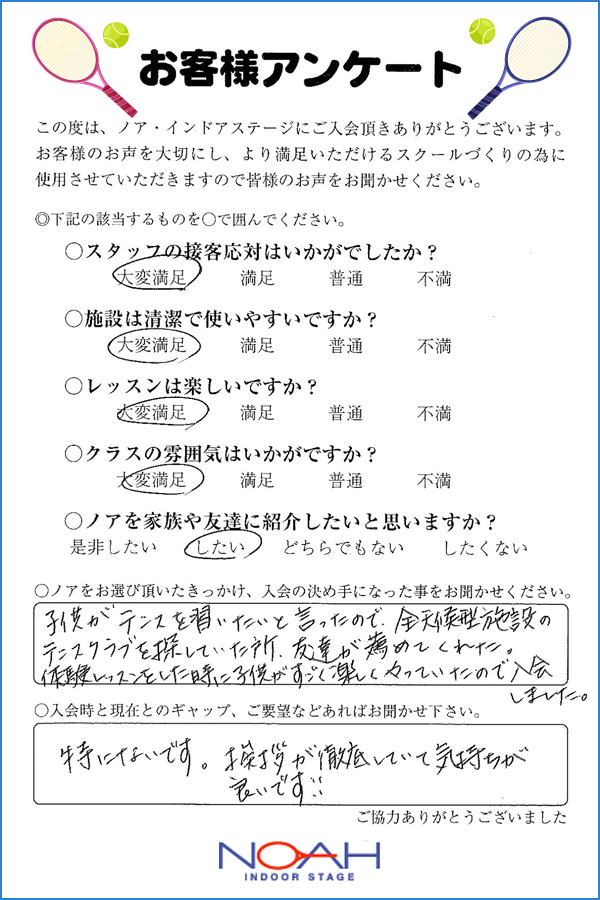 お客様アンケート
この度は、ノア・インドアステージにご入会頂きありがとうございます。
お客様のお声を大切にし、より満足いただけるスクールづくりの為に
使用させていただきますので皆様のお声をお聞かせください。
◎下記の該当するものを〇で囲んでください。
〇スタッフの接客応対はいかがでしたか？
大変満足 満足 普通 不満
〇施設は清潔で使いやすいですか？
大変満足 満足 普通 不満
〇レッスンは楽しいですか？
大変満足 満足 普通 不満
〇クラスの雰囲気はいかがですか？
大変満足 満足 普通 不満
〇ノアを家族や友達に紹介したいと思いますか？
是非したい したい どちらでもない したくない
〇ノアをお選び頂いたきっかけ、入会の決め手になった事をお聞かせください。
子供がテニスを習いたいと言ったので、全天候型施設の
テニスクラブを探していた所、友達が薦めてくれた。
体験レッスンをした時に子供がすごく楽しくやっていたので入会
しました。
〇入会時と現在とのギャップ、ご要望などあればお聞かせ下さい。
特にないです。挨拶が徹底していて気持ちが
良いです!!
ご協力ありがとうございました
NOAH
INDOOR STAGE